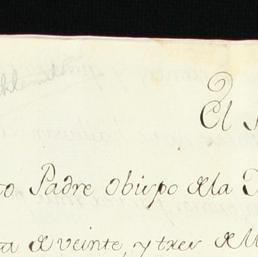 El
to Padre Obispo de la
de veinte, y tres de